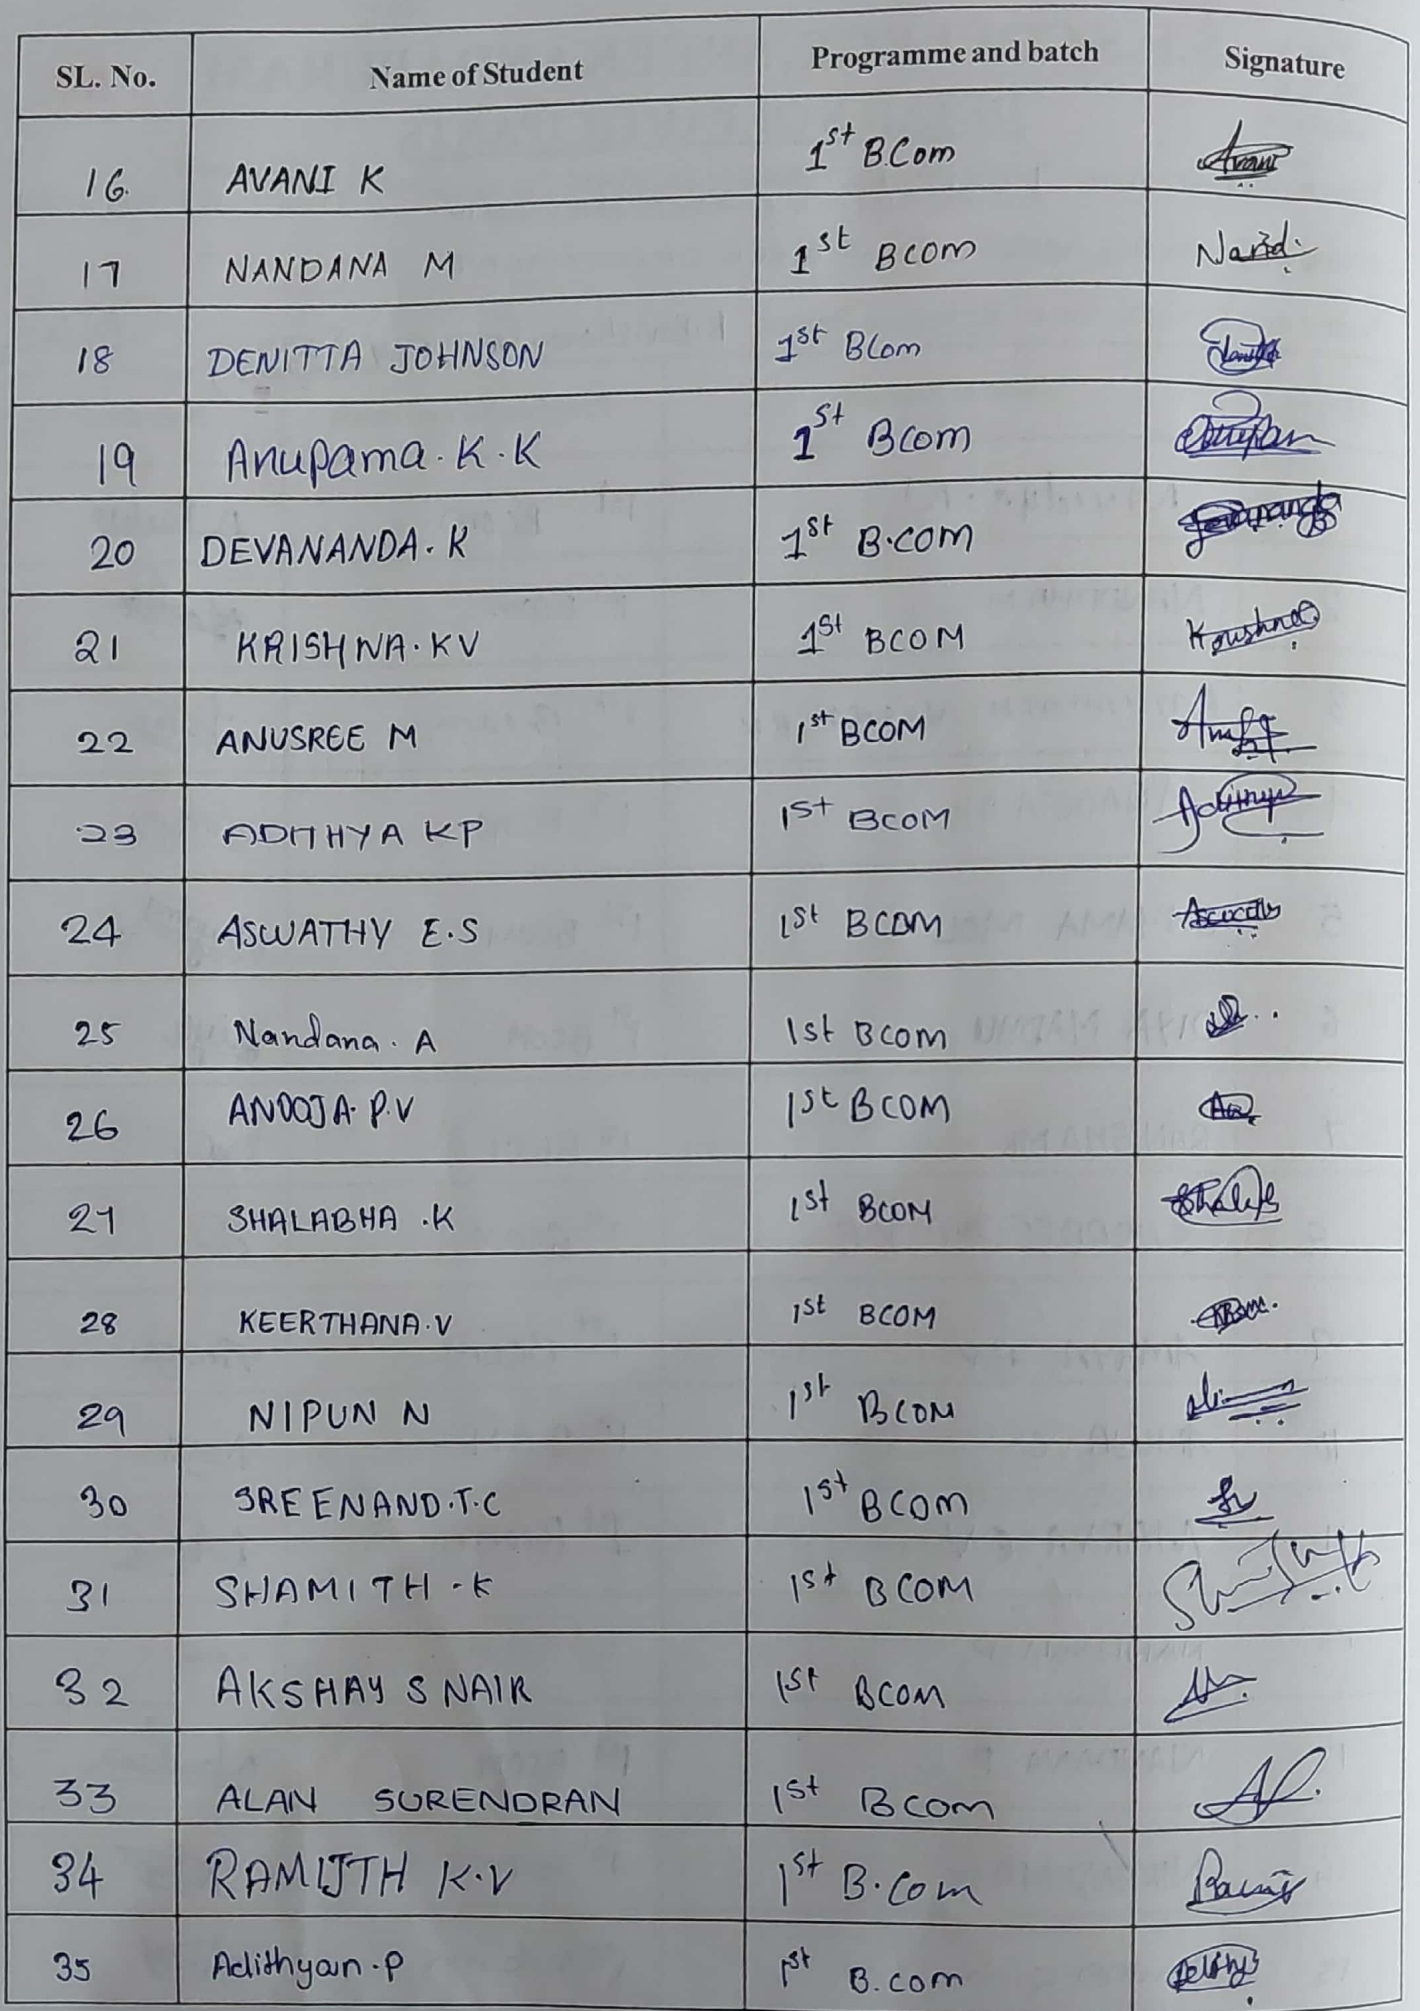 SL. No. Name of Student Programme and batch Signature
16. AVANI K 1st B.Com Avani
17 NANDANA M 1st BCOM Nand
18 DENITTA JOHNSON 1st BCom
19 Anupama. K. K 1st BCom
20 DEVANANDA. K 1st B.COM Devananda
21 KRISHNA. KV 1st BCOM Krishna
22 ANUSREE M 1st BCOM
23 ADITHYA KP 1st BCOM Adithya
24 ASWATHY E.S 1st BCOM
25 Nandana. A 1st BCOM
26 ANOOJA. P.V 1st BCOM
27 SHALABHA .K 1st BCOM
28 KEERTHANA.V 1st BCOM
29 NIPUN N 1st BCOM
30 SREENAND.T.C 1st BCOM
31 SHAMITH -K 1st BCOM
32 AKSHAY S NAIR 1st BCOM
33 ALAN SURENDRAN 1st BCOM
34 RAMIJTH K.V 1st B.Com
35 Adithyan.P 1st B.com